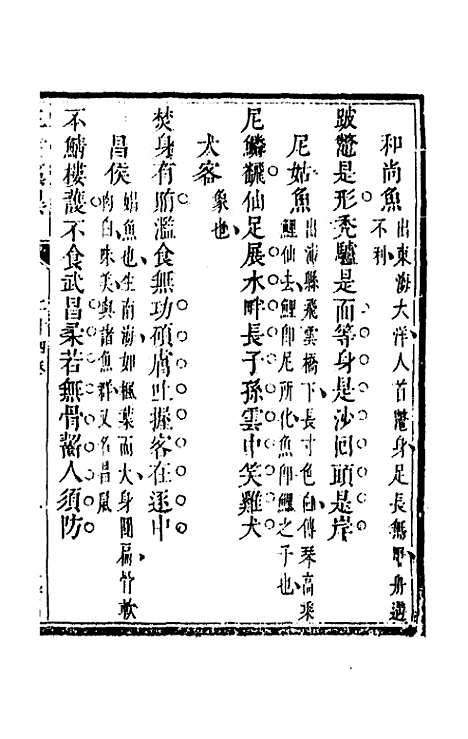 和尚魚 出東海大洋人首鼈身足長無甲舟遇
不利
跛鼈是形禿驢是面等身是沙囘頭是岸
尼姑魚 出沛縣飛雲橋下長寸色白傳琴高乘
鯉仙去鯉卽尼所化魚卽鯉之子也
尼鱗飜仙足展水畔長子孫雲中笑雞犬
大客 象也
焚身有賄濫食無功碩膚吐握客在逐中
昌侯 鯧魚也生南海如楓葉而大身闊褊骨軟
肉白味美與諸魚群又名昌鼠
不鯖樓護不食武昌柔若無骨齧人須防